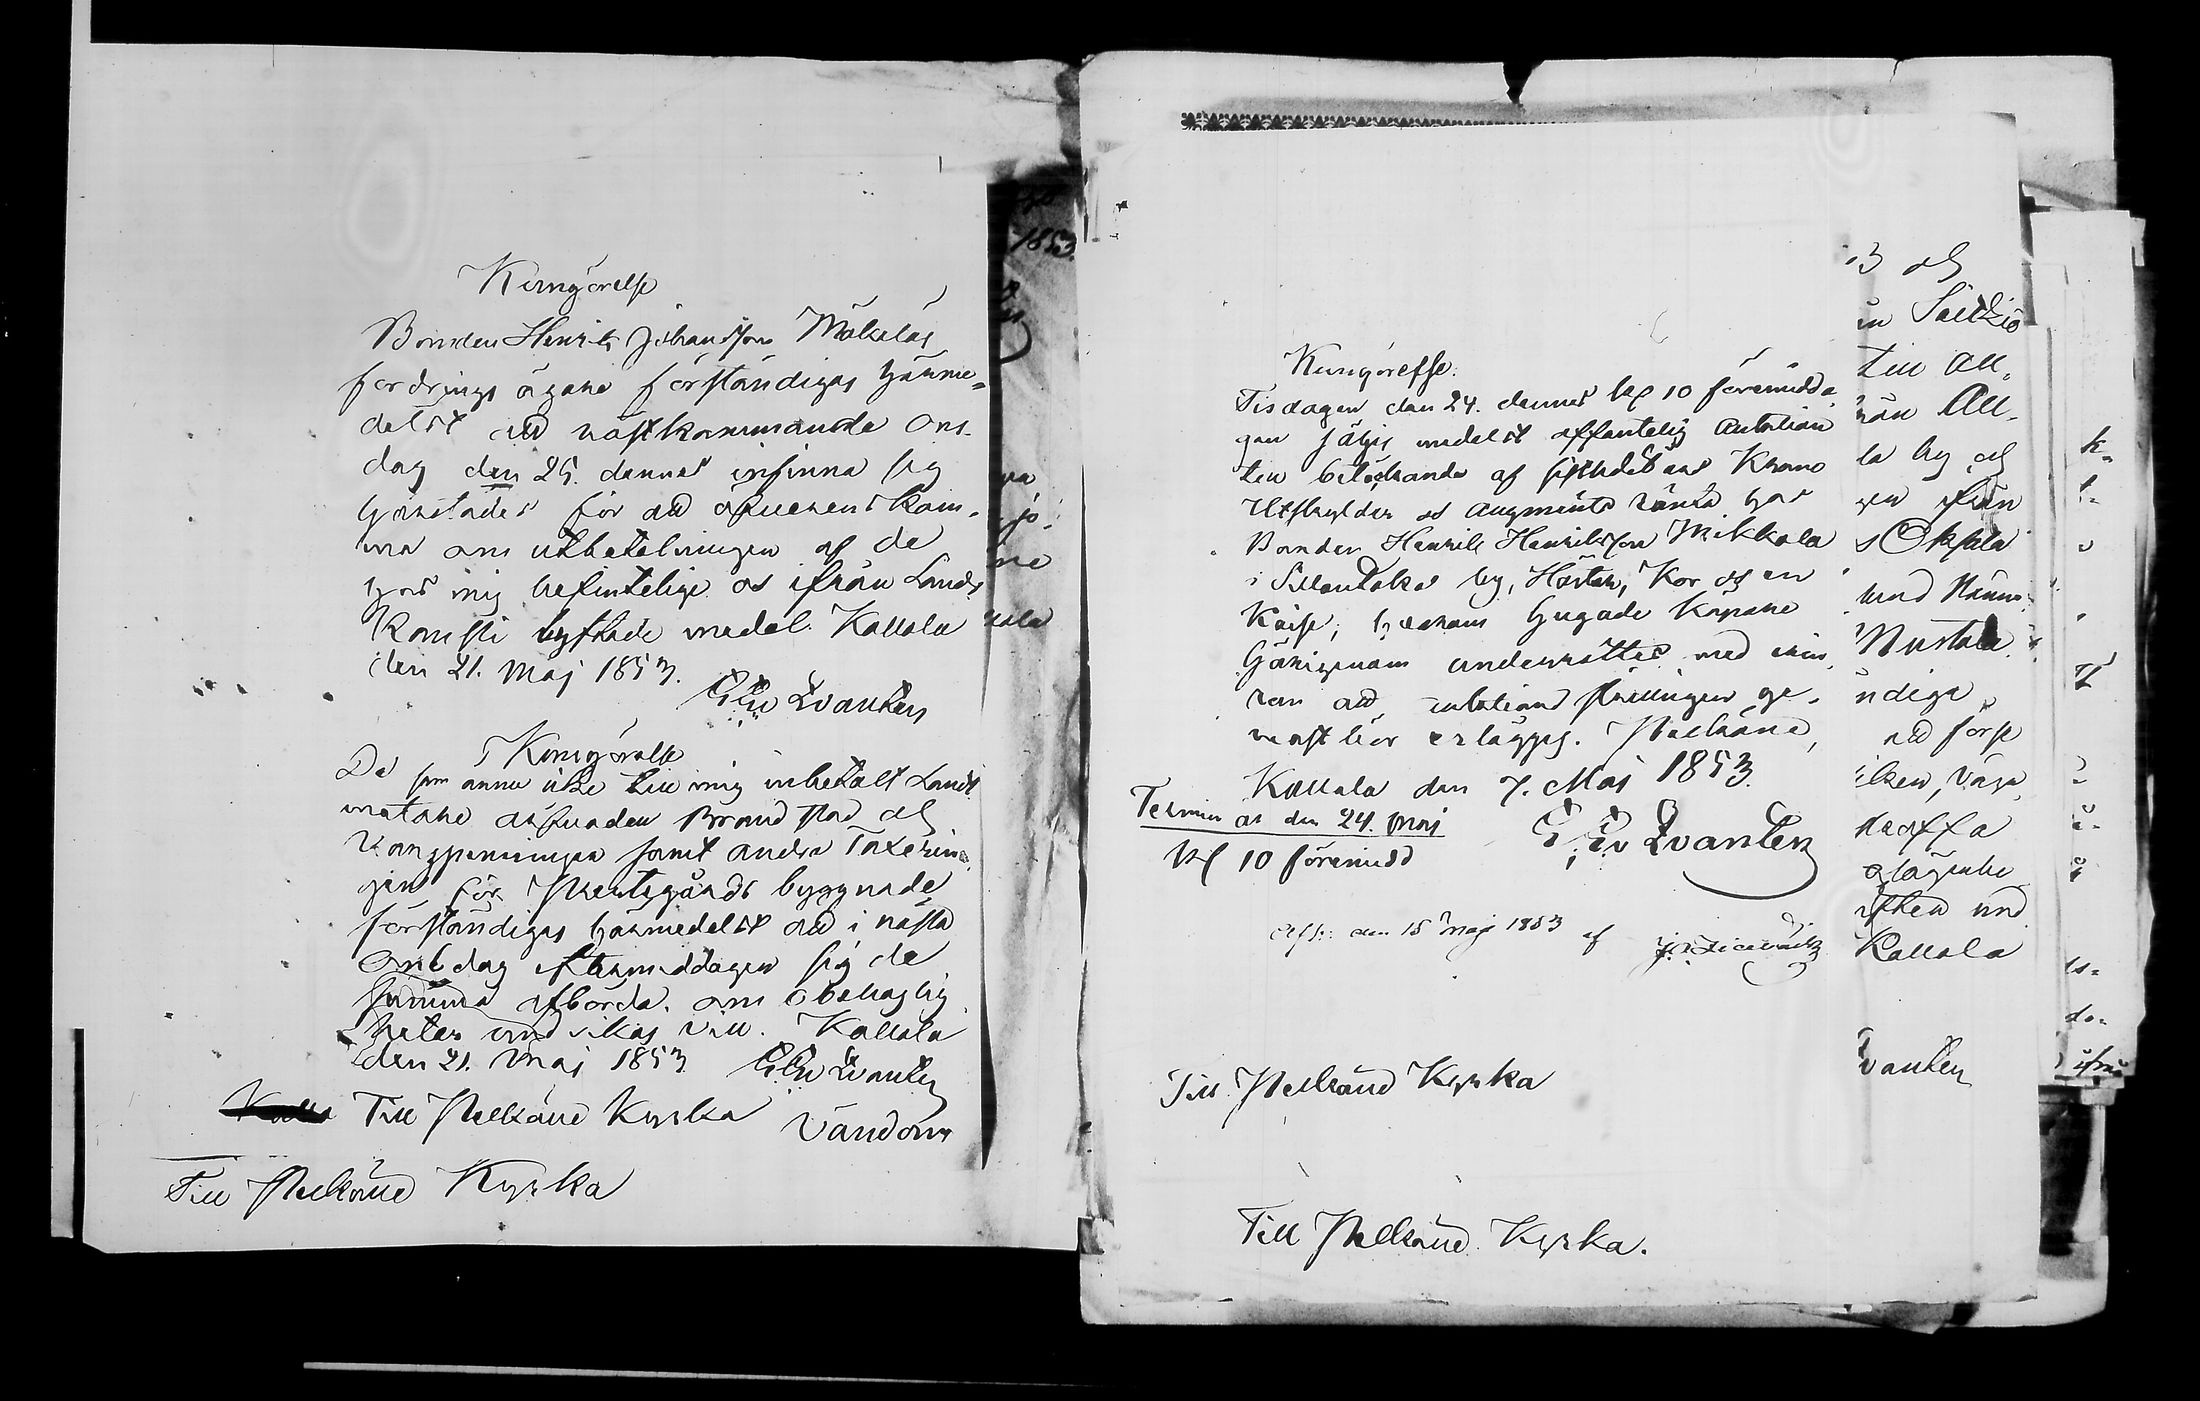 Kungörelse
Bonden Henrik Johansson Mäkeläs
fordrings ägare förständigas härme-
delst att nästkommande Ons-
dag den 25. dennes infinna sig
härstädes för att öfverens kom-
ma om utbetalningen af de
hos mig befintelige os ifrån Lands
Kansli lyftade medel. Kollola
den 21. Maj 1853.
G W Qvanten
Kungörelse
De som ännu icke till mig inbetalt Landt
mätare arfvoden Brand stod och
Vargpenningar samt andra Taxerin-
gen för Prestegårds byggnade
förständigas härmedelst att i nästa
Onsdag eftermiddagen sig de
samma afbörda. om obehaglig
heter undvikas vill. Kollola
den 21. Maj 1853 G W Qvanten
Till Pelkäne Kyrka Vändom
Till Pelkäne Kyrka
1853.
Kungörelse.
Tisdagen den 24. dennes kl 10 förmidda
gen säljes medelst offentelig Auktion
till betäckande af resterande Krono
Utskylder os Augments ränta hos
Bonden Henrik Henriksson Mikkola
i Sillantaka by, Hästar, Kor och en
Kärse, hvarom hugade Köpare
härigenom underrättes med erin
ran att auktions skillingen ge-
nast bör erläggas. Pelkäne,
Kollola den 7. Maj 1853.
Termin är den 24. Maj
kl 10 förmidd
G. W Qvanten
den 15 Maj 1853 af
Till Pelkäne Kyrka
Till Pelkäne Kyrka.
3 och
till All-
rån All-
la by och
gen ifrån
s Okkola
Mustala
ndiga
att förse
ilken, väga
skaffa
Kollola
vanten
k-
do-